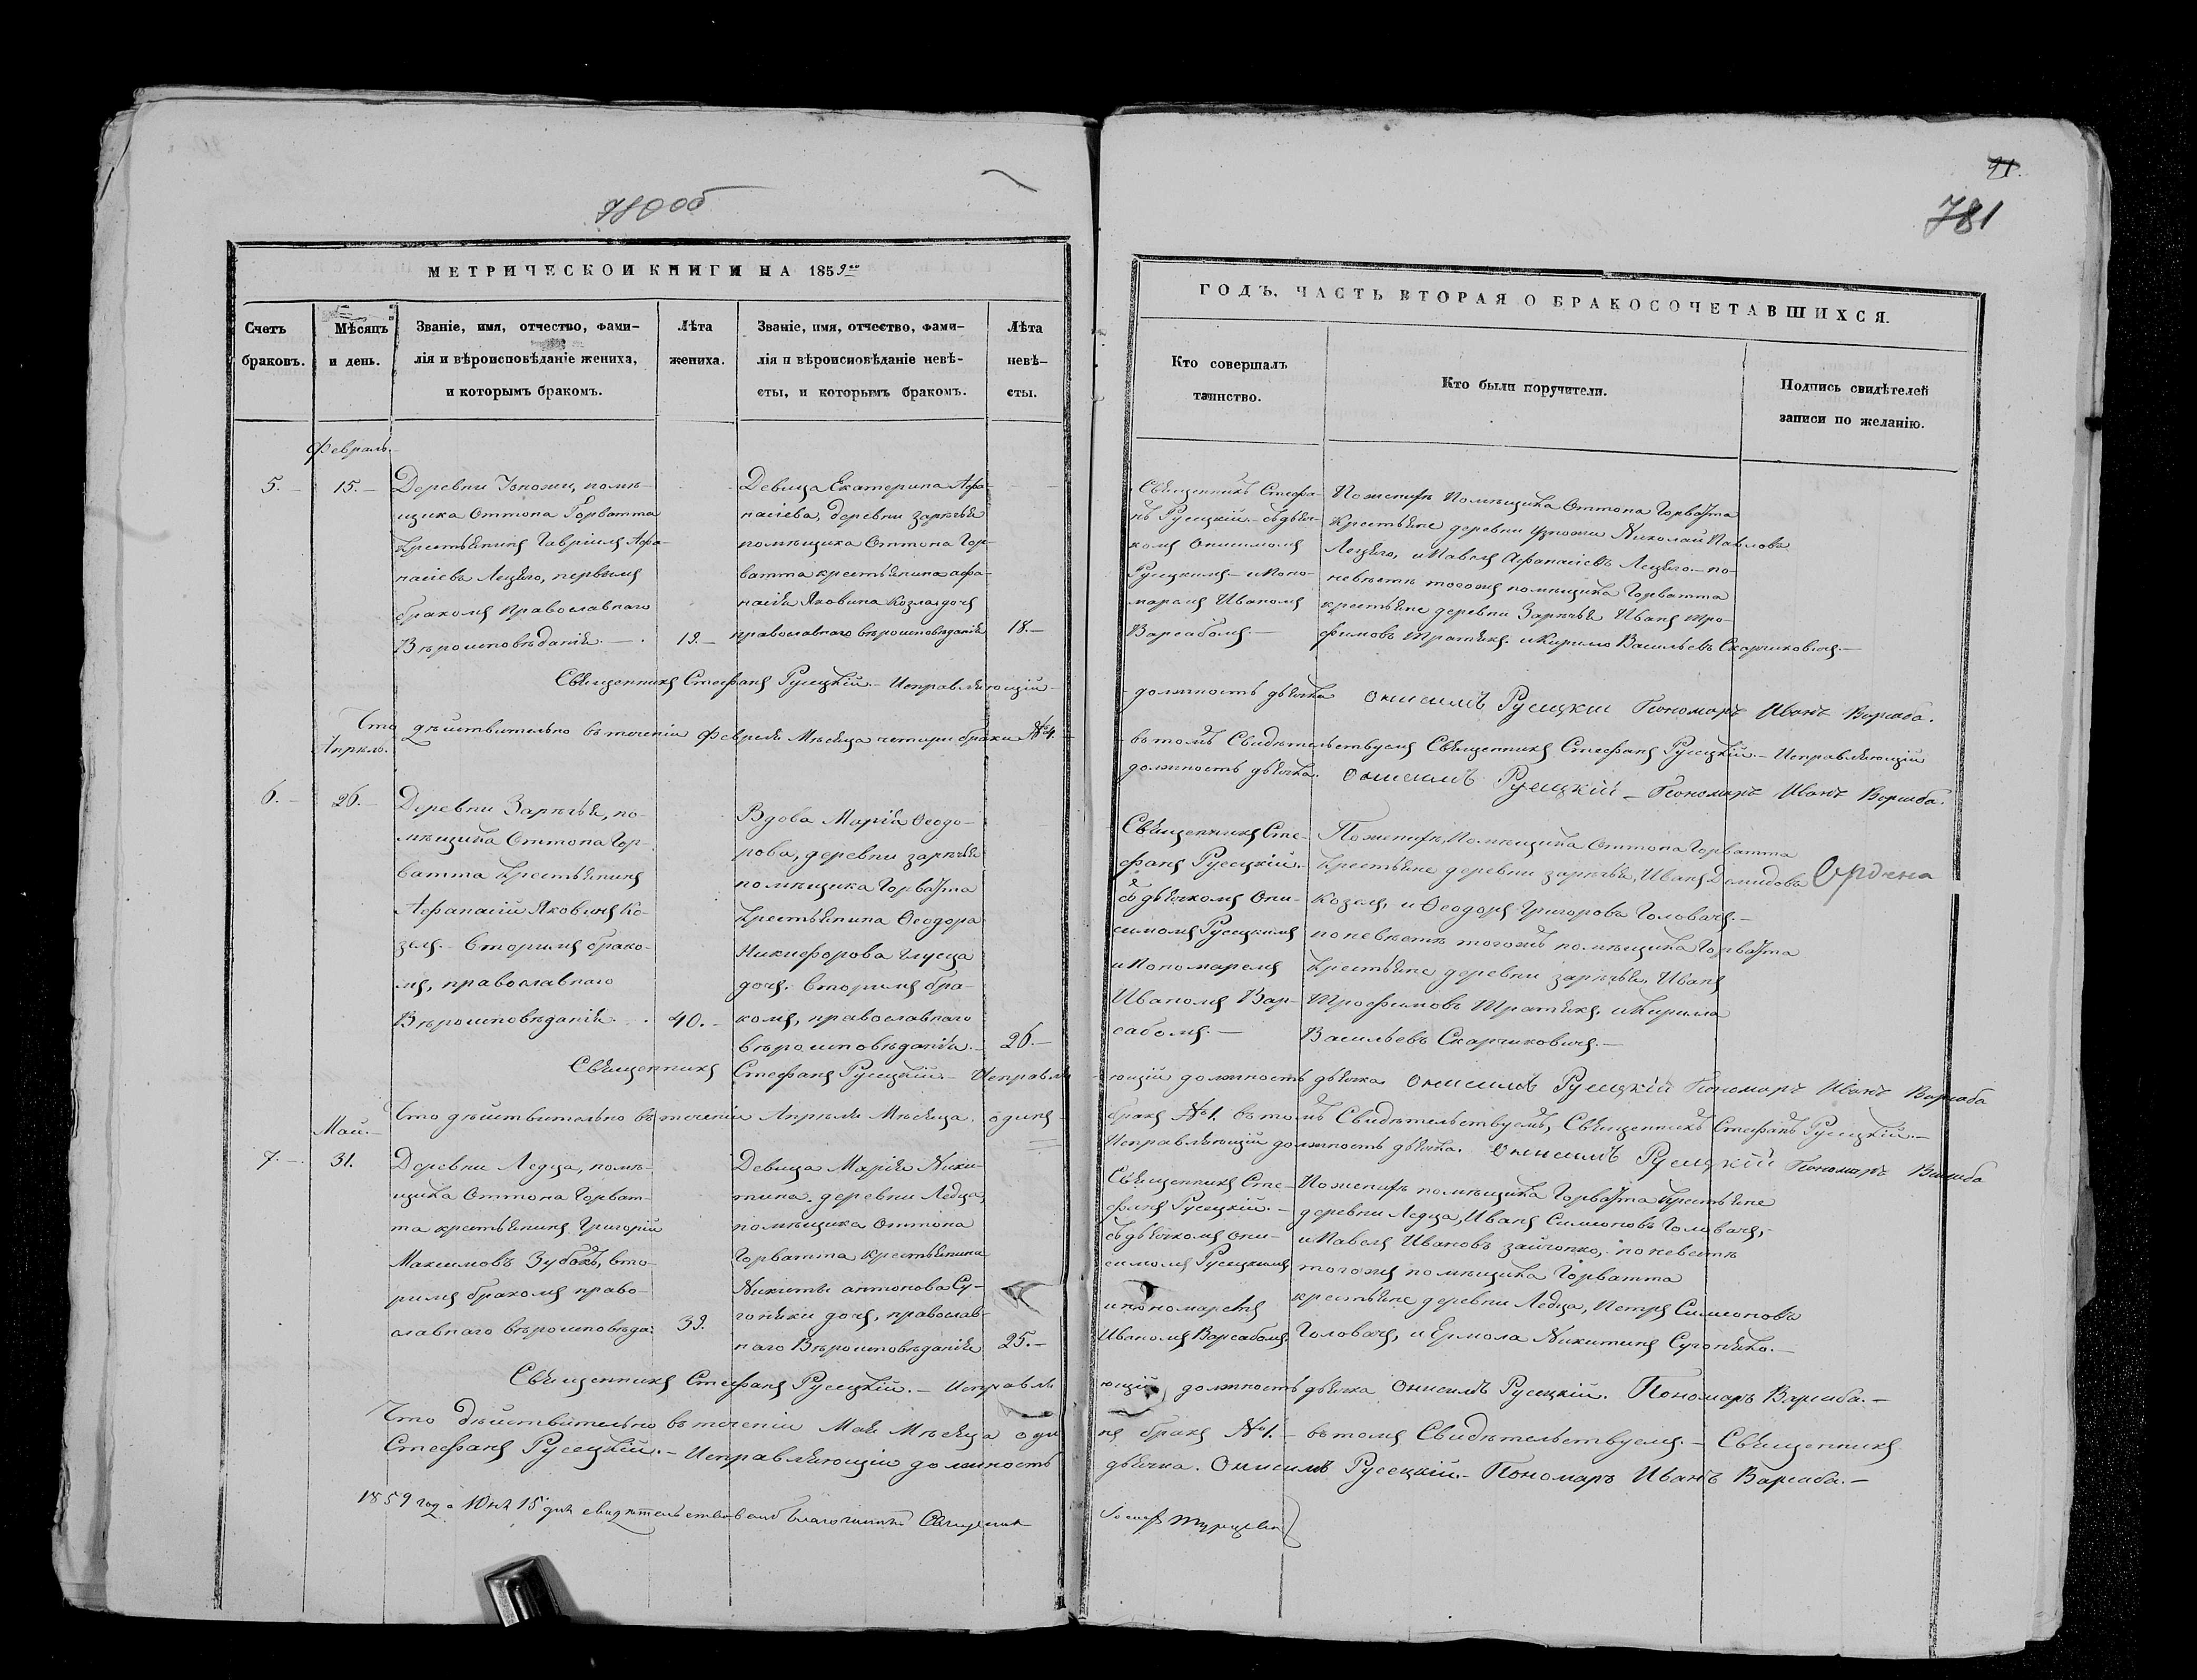 780об
МЕТРИЧЕСКОЙ КНИГИ НА 1859го
Счетъ браковъ.
Мѣсяцъ и день.
Званіе, имя, отчество, фами-
лія и вѣроисповѣданіе жениха,
и которымъ бракомъ.
Лѣта жениха.
Званіе, имя, отчество, фами-
лія и вѣроисповѣданіе невѣ-
сты, и которымъ бракомъ.
Лѣта невѣ-
сты.
Февраль.
5.
15.
Деревни помѣ-
щика Оттона Горватта
крестьянинъ Гавріилъ Афа-
насіевъ первымъ
бракомъ православнаго
Вѣроисповѣданія.
19.
Девица Екатерина Афа-
насіева, деревни Зарѣчья
помѣщика Оттона Гор-
ватта крестьянина Афа-
насія Яковина Козла дочь
православнаго вѣроисповѣданія
18.
Священникъ Стефанъ Русецкій. Исправляющій
Что дѣйствительно въ теченіи Февраля Мѣсяца четыри брака №4.
Апрѣль.
6.
26.
Деревни Зарѣчья, по-
мѣщика Оттона Гор-
ватта Крестьянинъ
Афанасій Яковинъ Ко-
зелъ. Вторимъ брако-
мъ, православнаго
Вѣроисповѣданія.
40.
Вдова Марія Феодо-
рова, деревни Зарѣчья
помѣщика Горватта
Крестьянина Феодора
Никифорова
дочь. Вторимъ бра-
комъ, православнаго
вѣроисповѣданія.
26.
Священникъ Стефанъ Русецкій. Исправля
Что дѣйствительно въ теченіи Апрѣля Мѣсяца одинъ
Май.
7.
31.
Деревни Ледца, помѣ-
щика Оттона Горват-
та крестьянинъ Григорій
Максимовъ Зубакъ, вто-
римъ бракомъ право-
славнаго вѣроисповѣда:
39.
Девица Марія Ники-
тина деревни Ледца,
помѣщика Оттона
Горватта крестьянина
Никиты Антонова Су-
дочь, православ-
наго Вѣроисповѣданія
25.
Священникъ Стефанъ Русецкій. Исправля
Что дѣйствительно въ теченіи Мая Мѣсяца оди
Стефанъ Русецкій. Исправляющій должность
1859 года Юня 15 дня свидѣтельствовалъ Благочинный Священник
91.
781
ГОДЪ, ЧАСТЬ ВТОРАЯ О БРАКОСОЧЕТАВШИХСЯ.
Кто совершалъ таинство.
Кто были поручители.
Подпись свидѣтелей
записи по желанію.
Священникъ Стефа-
нъ Русецкій. съ дьяч-
комъ Онисимомъ
Русецкимъ и Поно-
маремъ Иваномъ
Варсабомъ.
По женихѣ Помѣщика Оттона Горватта
крестьяне деревни Николай Павловъ
и Павелъ Афанасіевъ по
невѣстѣ тогожъ помѣщика Горватта
крестьяне деревни Зарѣчья Иванъ Тро-
фимовъ и Кирило Васильевъ Скарчиковичъ.
должность дьячка Онисимъ Русецкий Пономаръ Иванъ Варсаба.
въ томъ Свидѣтельствуемъ Священникъ Стефанъ Русецкій. Исправляющій
должность дьячка. Онисимъ Русецкій Пономаръ Иванъ Варсаба.
Священникъ Сте-
фанъ Русецкій.
съ дьячкомъ Они-
симомъ Русецкимъ
и Пономаремъ
Иваномъ Вар-
сабомъ.
По женихѣ, Помѣщика Оттона Горватта
Крестьяне деревни Зарѣчья, Иванъ Демидовъ
Козелъ, и Феодоръ Григоровъ Головачъ.
по невѣстѣ тогожъ помѣщика Горватта
Крестьяне деревни Зарѣчья, Иванъ
Трофимовъ и Кирила
Васильевъ Скарчиковичъ.
ющій должность дьячка Онисимъ Русецкій Пономаръ Иванъ Варсаба
бракъ №1. въ томъ Свидѣтельствуемъ, Священникъ Стефанъ Русецкій.
Исправляющій должность дьячка. Онисимъ Русецкій Пономаръ Варсаба
Священникъ Сте-
фанъ Русецкій.
съ дьячкомъ Они-
симомъ Русецкимъ
и пономаремъ
Иваномъ Варсабомъ.
По женихѣ помѣщика Горватта крестьяне
деревни Ледца, Иванъ Симоновъ Головачъ,
и Павелъ Ивановъ по невѣстѣ
тогожъ помѣщика Горватта
крестьяне деревни Ледца, Петръ Симоновъ
Головачъ, и Ермола Никитинъ
ющій должность дьячка Онисимъ Русецкій. Пономаръ Варсаба.
нъ бракъ №1. въ томъ Свидѣтельствуемъ. Священникъ
дьячка. Онисимъ Русецкій. Пономаръ Иванъ Варсаба.